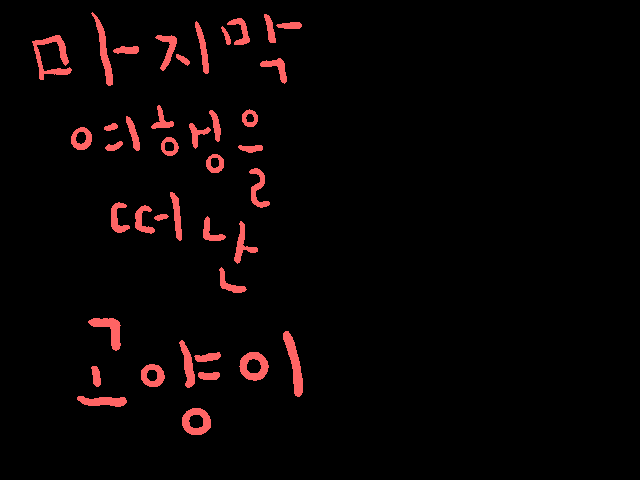 마지막
여행을
떠난
고양이